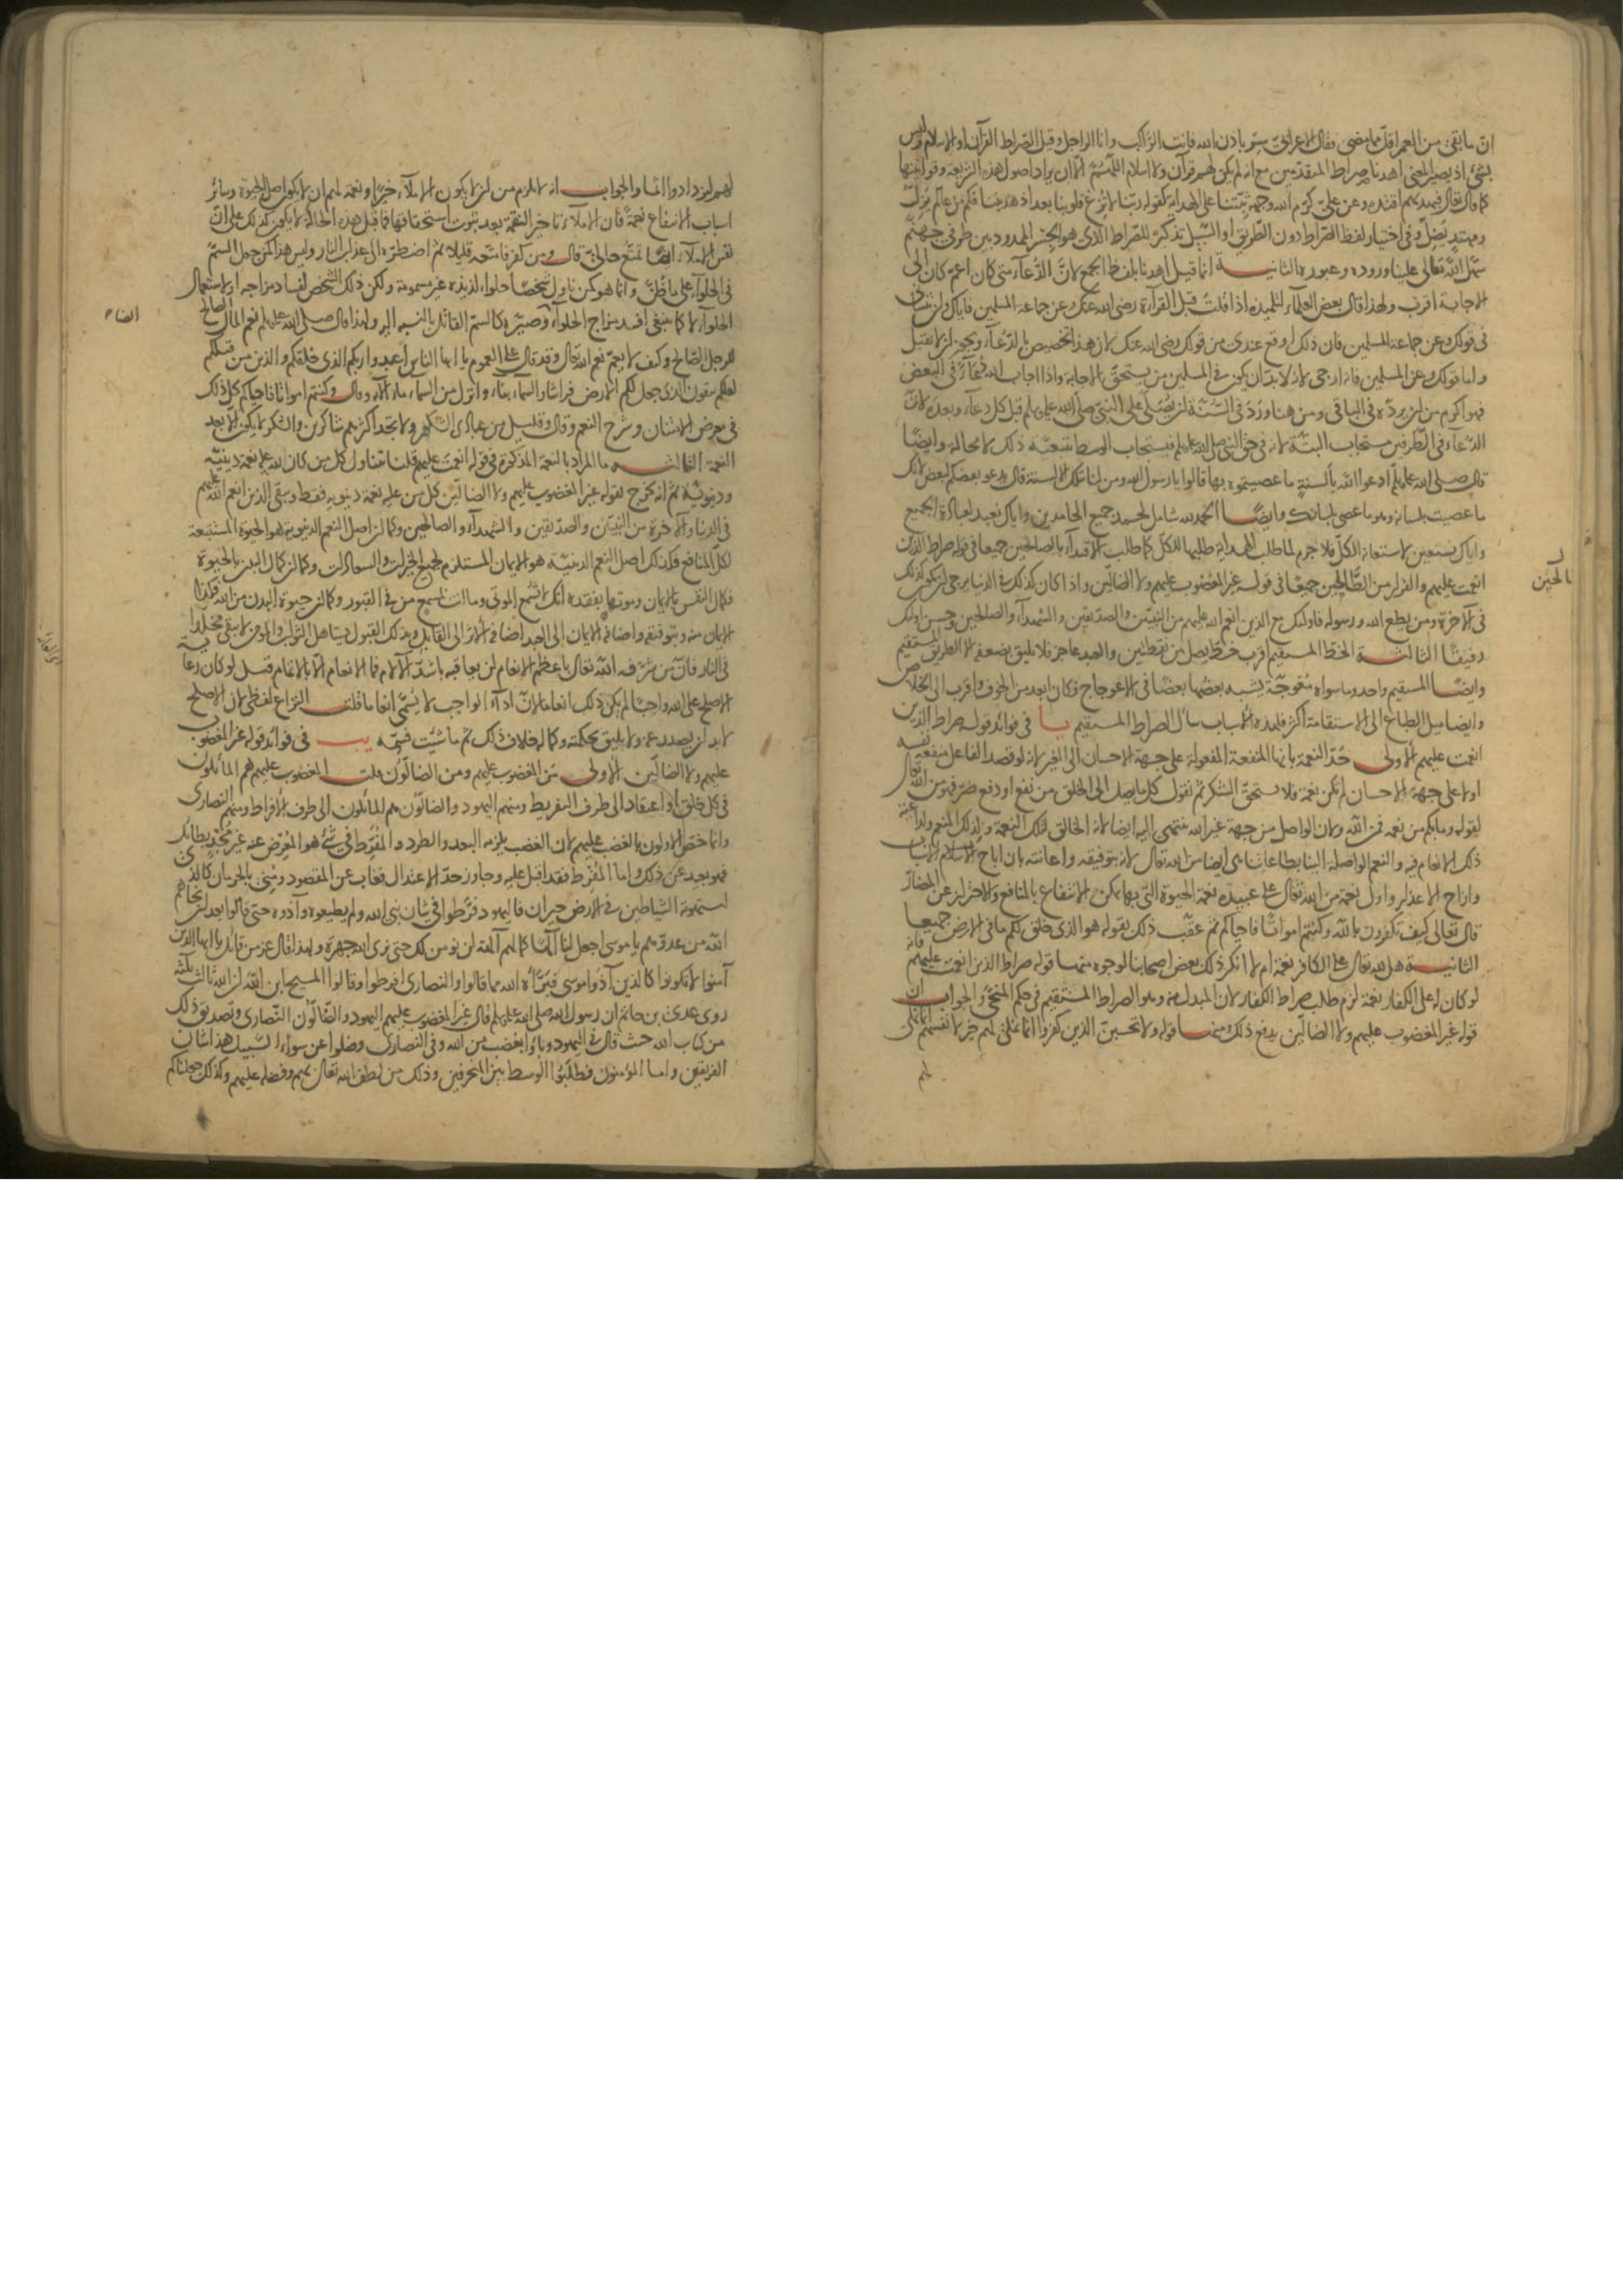 انّ ما بقى من العمر اقلّ مما مضى فقال الاعرابىّ سِرْ باذن الله فانت الراكب وانا الراجل وقيل الصراط القرآن او الاسلام وليس
بشئ اذ يصير المعنى اهدنا صراط المتقدّمين مع انه لم يكن لهم قرآن ولا اسلام اللّٰهمّ الّا ان يراد اصول هذه الشريعة وقوانينها
كما قال تعالى فبهديهم اقتده وعن علىّ كرّم الله وجهه ثبّتنا على الهداية كقوله ربّنا لا تُزغ قلوبنا بعد اذ هديتنا فكم من عالم يَزِلّ
ومهتدٍ يَضِلّ وفى اختيار لفظ الصراط دون الطريق او السّبيل تذكير للصراط الذى هو الجِسْر الممدود بين طرفى جهنّم
سهّل الله تعالى علينا وروده وعبوره الثانيــة انما قيل اهدنا بلفظ الجمع لانّ الدّعاء متى كان اعمّ كان الى
الاجابة اقرب ولهذا قال بعض العلماء لتلميذه اذا قلتَ قبل القرآءة رضى الله عنك وعن جماعة المسلمين فاياك وان تنسانى
فى قولك وعن جماعة المسلمين فان ذلك اوقع عندى من قولك رضى الله عنك لان هذا تخصيص بالدّعاء ويجوز ان لا يقبل
واما قولك وعن المسلمين فانه ارجى لانه لا بدّ ان يكون فى المسلمين من يستحقّ الاجابة واذا اجاب الله دُعَآءً فى البعض
فهو اكرم من ان يردّه فى الباقى ومن هنا وَرَدَ فى السُّنّة ان يُصَلَّى على النبىّ صلى الله عليه وسلم قبل كل دعاء وبعده لانّ
الدّعاء فى الطرفين مستجاب البتّة لانه فى حق النبى صلى الله عليه وسلم فيستجاب الوسط بتبعيّة ذلك لا محالة وايضًا
قال صلى الله عليه وسلم ادعوا الله بألسنةٍ ما عصيتموه بها قالوا يا رسول الله ومن لنا بتلك الالسنة قال يدعو بعضكم لبعض لانك
ما عصيت بلسانه وهو ما عصى بلسانك وايضًا الحمد لله شامل لحمد جميع الحامدين واياك نعبد لعبادة الجميع
واياك نستعين لاستعانة الكلّ فلا جرم لما طلب الهداية طلبها للكل كما طلب الاقتداء بالصالحين جميعا فى قوله صراط الذين
انعمت عليهم والفرار من الطالحين جميعًا فى قوله غير المغضوب عليهم ولا الضالّين واذا كان كذلك فى الدنيا يرجى ان يكون كذلك
فى الآخرة ومن يطع الله ورسوله فاولئك مع الذين انعم الله عليهم من النبيّين والصدّيقين والشهداء والصالحين وحسن اولئك
رفيقًا الثالثــة الخطّ المستقيم اقرب خط يصل بين نقطتين والعبد عاجز فلا يليق بضعفه الا الطريق المستقيم
وايضًا المستقيم واحد وما سواه مُعْوجّة يشبه بعضها بعضًا فى الاعوجاج فكان ابعد من الخوف واقرب الى الخلاص
وايضا ميل الطباع الى الاستقامة اكثر فلهذه الاسباب سأل الصراط المستقيم يـا فى فوائد قوله صراط الذين
انعمت عليهم الاولى حَدّ النعمة بانها المنفعة المفعولة على جهة الاحسان الى الغير لانه لو قصد الفاعل منفعة نفسه
او لا على جهة الاحسان لم تكن نعمة فلا يستحقّ الشكر ثم نقول كل ما يصل الى الخلق من نفع او دفع ضرّ فهو من الله تعالى
لقوله وما بكم من نعمة فمن الله ولان الواصل من جهة غير الله ينتهى اليه ايضا لانه الخالق لتلك النعمة ولذلك المنعم ولداعية
ذلك الانعام فيه والنعم الواصلة الينا بطاعاتنا هى ايضا من الله تعالى لانه بتوفيقه واعانته بان اتاح الاسباب
وازاح الاعذار واول نعمة من الله تعالى على عبيده نعمة الحيوة التى بها يمكن الانتفاع بالمنافع والاحتراز عن المضارّ
قال تعالى كيف تكفرون بالله وكنتم امواتًا فاحياكم ثم عقّب ذلك بقوله هو الذى خلق لكم ما فى الارض جميعا
الثانيــة هل لله تعالى على الكافر نعمة ام لا انكر ذلك بعض اصحابنا لوجوه منها قوله صراط الذين انعمت عليهم فانه
لو كان له على الكفار نعمة لزم طلب صراط الكفار لان المبدل منه وهو الصراط المستقيم فى حكم المنحّى والجواب ان
قوله غير المغضوب عليهم ولا الضالّين يدفع ذلك ومنها قوله ولا تحسبنّ الذين كفروا انما نملى لهم خير لانفسهم انما نملى
لهم
لهم ليزدادوا اثما والجواب انه لا يلزم من ان لا يكون الاملاء خيرا ونعمة لهم ان لا يكون اصل الحيوة وسائر
اسباب الانتفاع نعمةً فان الاملاء تاخير النقمة بعد ثبوت استحقاقها فما قبل هذه الحالة لا يكون كذلك على انّ
نفس الاملاء ايضًا تمتُّع حالىّ قال ومن كفر فامتّعه قليلا ثم اضطرّه الى عذاب النار وليس هذا كمن جعل السمّ
فى الحلواء على ما ظُنّ وانما هو كمن ناول شخصًا حلواء لذيذة غير مسمومة ولكن ذلك الشخص لفساد مزاجه او لاستعمال
الحلواء لا كما ينبغى افسد مزاج الحلواء وصيّره كالسمّ القاتل بالنسبة اليه ولهذا قال صلى الله عليه وسلم نعم المال الصالح
للرجل الصالح وكيف لا يعمّ نعم الله تعالى وقد قال على العموم يا ايها الناس اعبدوا ربكم الذى خلقكم والذين من قبلكم
لعلكم تتقون الذى جعل لكم الارض فراشا والسماء بناء وانزل من السماء ماء الآية وقال وكنتم امواتا فاحياكم كل ذلك
فى معرض الامتنان وشرح النعم وقال وقليل من عبادى الشكور ولا تجد اكثرهم شاكرين والشكر لا يكون الا بعد
النعمة الثالثــة ما المراد بالنعمة المذكورة فى قوله انعمت عليهم قلنا يتناول كل من كان لله عليه نعمة دينيّة
ودنيويّة ثم انه يخرج بقوله غير المغضوب عليهم ولا الضالّين كل من عليه نعمة دنيوية فقط وبقى الذين انعم الله عليهم
فى الدنيا والآخرة من النبيّين والصدّيقين والشهداء والصالحين وكما ان اصل النعم الدنيوية هو الحيوة المستتبعة
لكلّ المنافع فكذلك اصل النعم الدينيّة هو الايمان المستلزم لجميع الخيرات والسعادات وكما ان كمال البدن بالحيوة
فكمال النفس بالايمان وموتها بفقده انك لا تُسمع الموتى وما انت بمسمع من فى القبور وكما ان حيوة البدن من الله فكذا
الايمان منه وبتوفيقه واضافة الايمان الى العبد اضافة الاثر الى القابل وبذلك القبول يستاهل الثواب والمؤمن لا يبقى مخلدا
فى النار فانّ من شرّفه الله تعالى باعظم الانعام لن يعاقبه باشدّ الآلام فما الانعام الّا بالاتمام قيل لو كان رعاية
الاصلح على الله واجبًا لم يكن ذلك انعاما لانّ ادآء الواجب لا يُسَمّى انعاما قلت النزاع لفظى لان الاصلح
لا بد ان يصدر عنه ولا يليق بحكمته وكماله خلاف ذلك ثم ما شئت فسمّه يب فى فوائد قوله غير المغضوب
عليهم ولا الضالّين الاولى مَن المغضوب عليهم ومن الضالّون قلت المغضوب عليهم هم المائلون
فى كل خلق او اعتقاد الى طرف التفريط ومنهم اليهود والضالّون هم المائلون الى طرف الافراط ومنهم النصارى
وانما خصّ الاولون بالغضب عليهم لان الغضب يلزمه البعد والطرد والمُفَرِّط فى شئ هو المُعْرِض عنه غير مُجْدٍ بطائل
فهو بعيد عن ذلك واما المُفْرِط فقد اقبل عليه وجاوز حدّ الاعتدال فغاب عن المقصود ومُنِى بالحرمان كالذى
استهوته الشياطين فى الارض حيران فاليهود فرّطوا فى شان نبىّ الله ولم يطيعوه وآذوه حتى قالوا بعد ان نجاهم
الله من عدوّهم يا موسى اجعل لنا الٰهًا كما لهم آلهة لن نؤمن لك حتى نرى الله جهرة ولهذا قال عز من قائل يا ايها الذين
آمنوا لا تكونوا كالذين آذَوا موسى فبَرَّأه الله مما قالوا والنصارى افرطوا وقالوا المسيح ابن الله ان الله ثالث ثلثة
روى عدىّ بن حاتم ان رسول الله صلى الله عليه وسلم قال غير المغضوب عليهم اليهود والضّالّون النّصارى وتصديق ذلك
من كتاب الله حيث قال فى اليهود وباؤا بغضب من الله وفى النصارى وضلوا عن سواء السّبيل هذا شان
الفريقين واما المؤمنون فطَلَبُوا الوسط بين المنحرفين وذلك من لطف الله تعالى بهم وفضله عليهم وكذلك جعلناكم